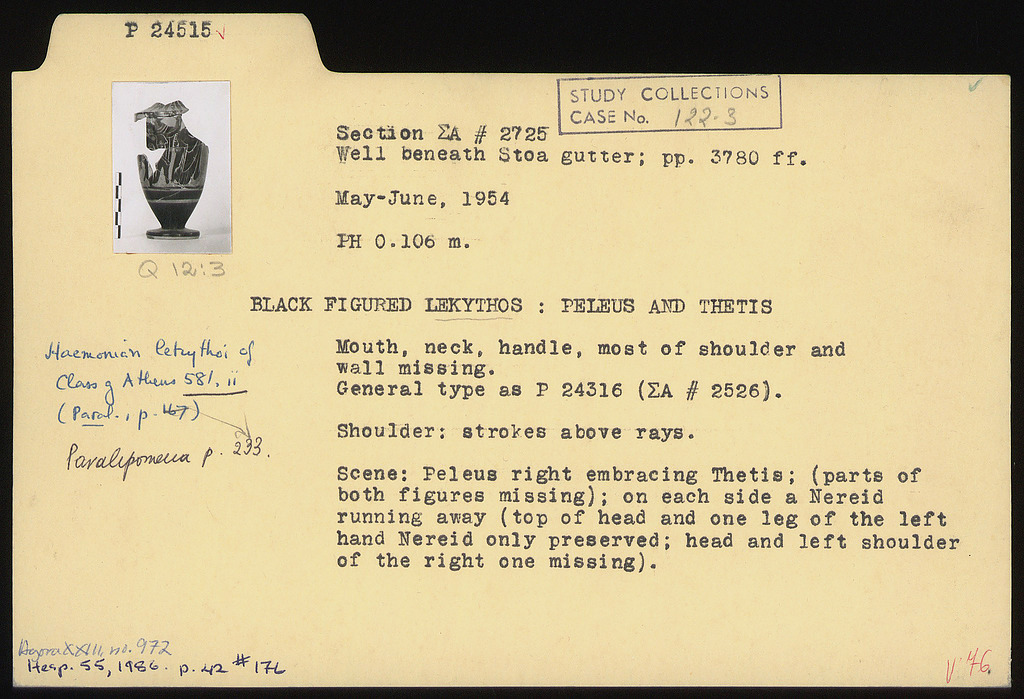 P 24515 ✓
STUDY COLLECTIONS
CASE No. 122-3
Section ΣΑ # 2725
Well beneath Stoa gutter; pp. 3780 ff.
May-June, 1954
PH 0.106 m.
Q 12:3
BLACK FIGURED LEKYTHOS : PELEUS AND THETIS
Haemonian lekythoi of
Class of Athens 581, ii
(Paral., p. 167)
Paralipomena p. 233.
Mouth, neck, handle, most of shoulder and
wall missing.
General type as P 24316 (ΣΑ # 2526).
Shoulder: strokes above rays.
Scene: Peleus right embracing Thetis; (parts of
both figures missing); on each side a Nereid
running away (top of head and one leg of the left
hand Nereid only preserved; head and left shoulder
of the right one missing).
Agora XXIII, no. 972
Hesp. 55, 1986. p. 42 #
V'46.